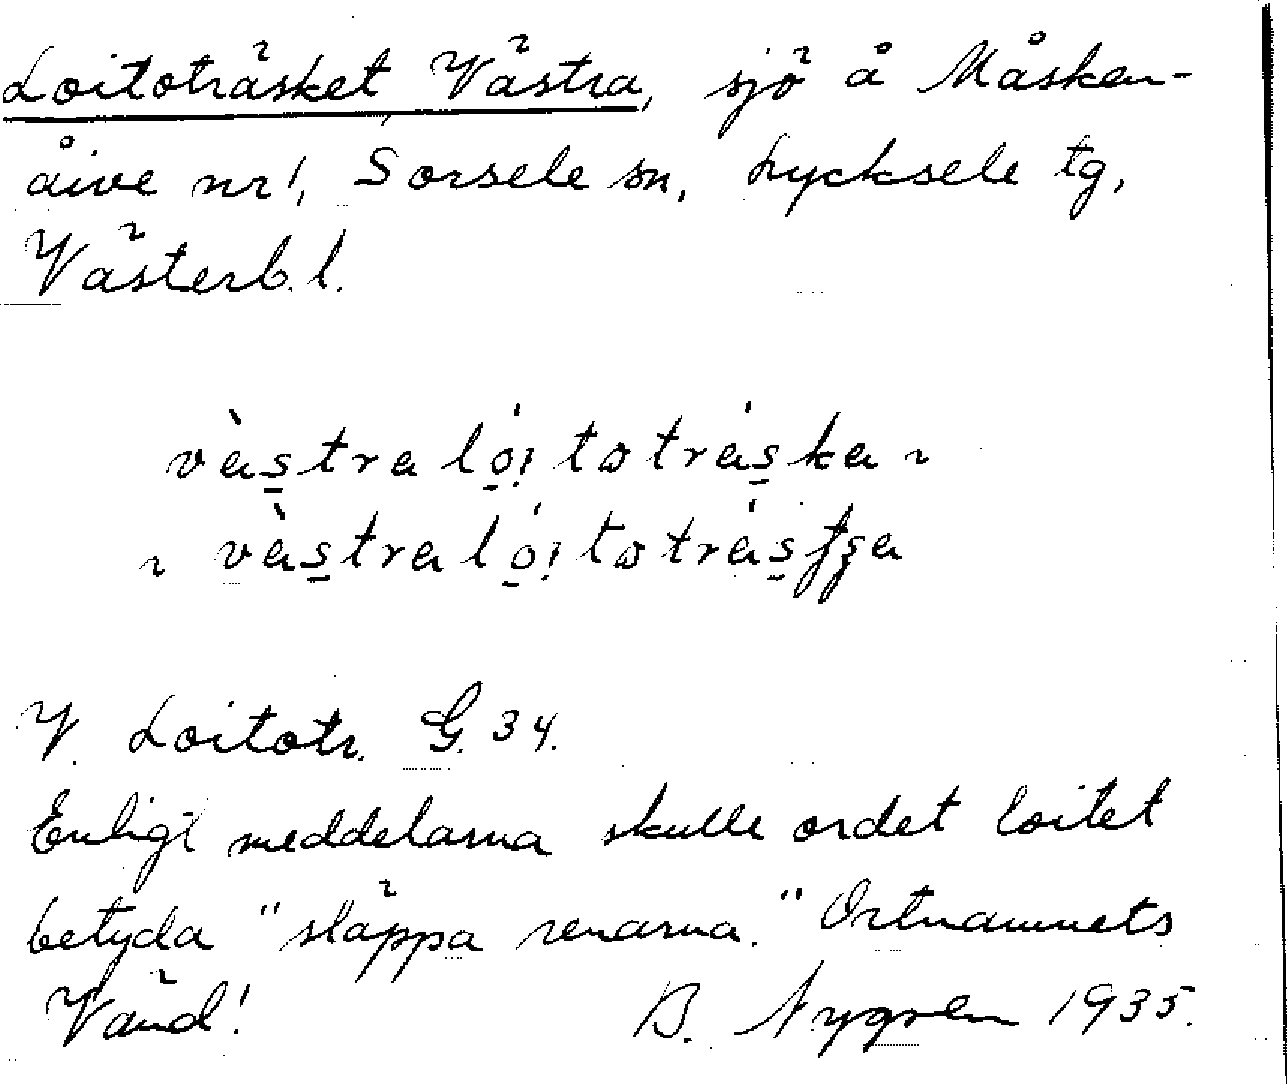 Loitoträsket Västra, sjö å Måsken-
åive nr 1, Sorsele sn, Lycksele tg,
Västerb. l.
vàs̱traló̱i̭toträ́s̱ka ~
~ vàs̱traló̱i̭toträ́s̱
V. Loitotr. G. 34.
Enligt meddelarna skulle ordet loitet
betyda "släppa renarna." Ortnamnets
Vänd! B. Nygren 1935.